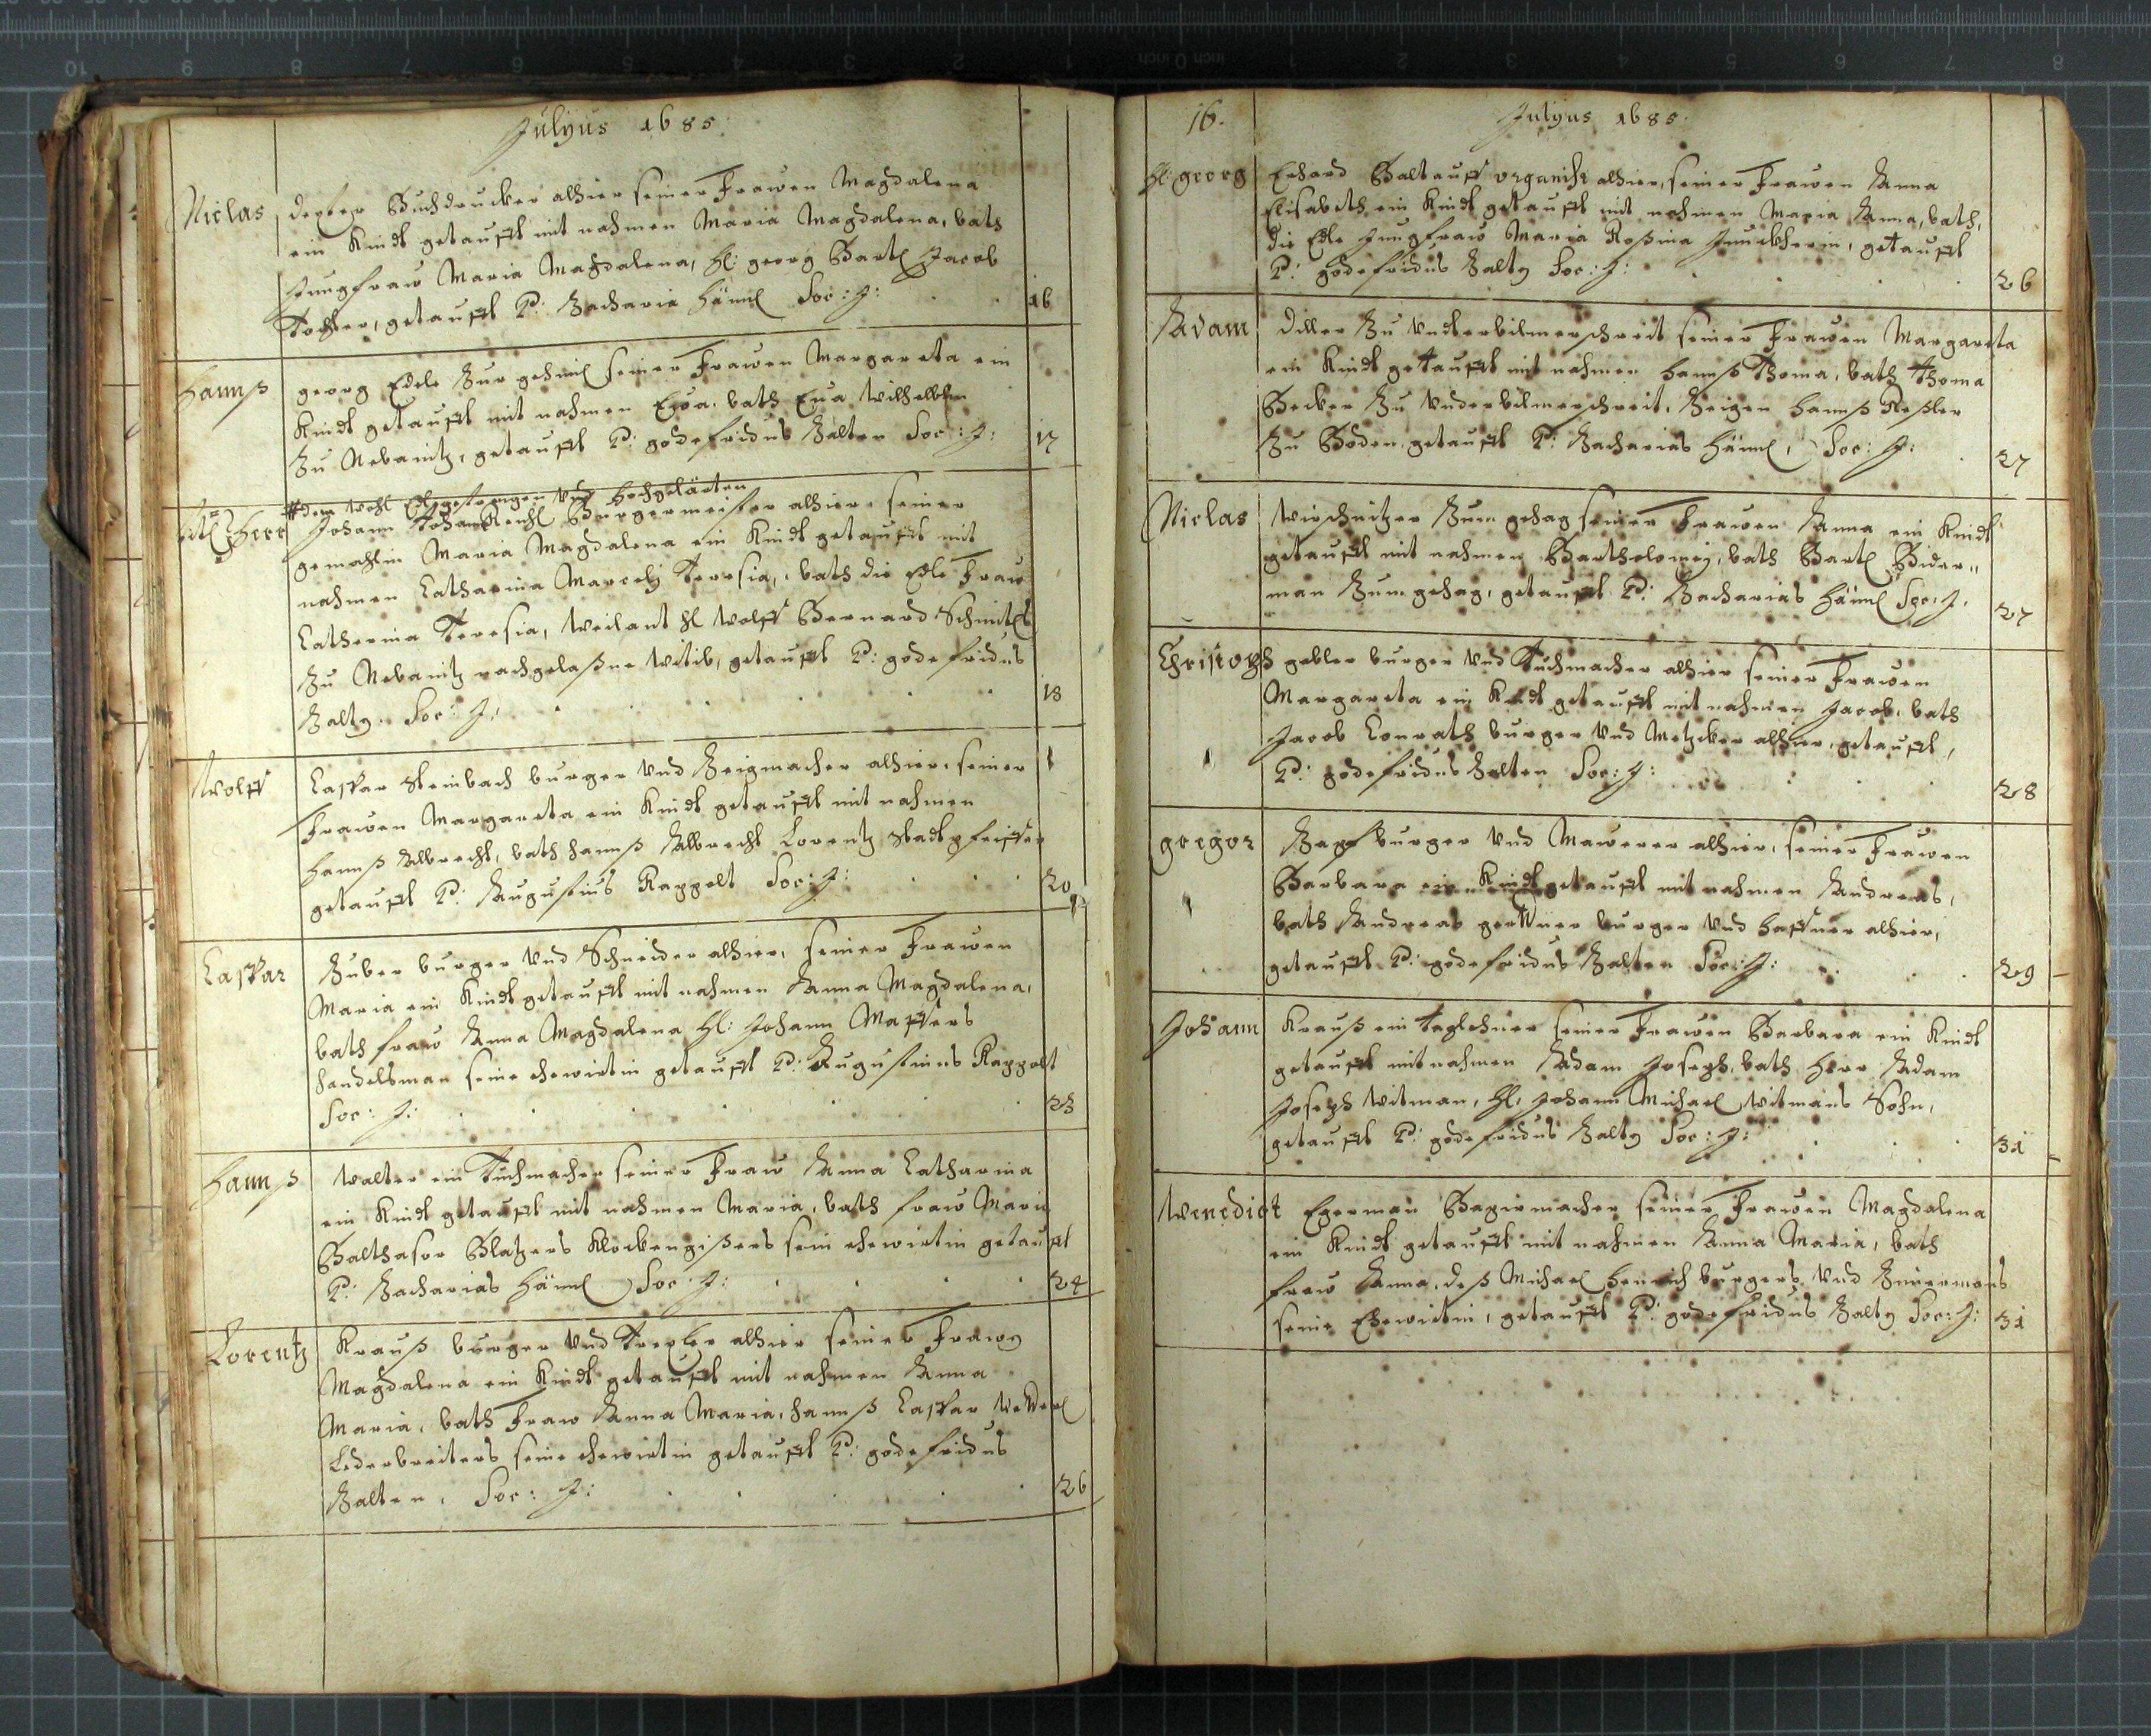 Julyus 1685
Niclas
Buchdrucker alhier seiner Frawen Magdalena
ein Kindt getaufft mit nahmen Maria Magdalena, bath
Jungfraw Maria Magdalena, Hl: georg Bartl Jacob
Tochter, getaufft P: Zacharia Häml Soc: J: 16
Hannß georg Edele Zur gehml seiner Frawen Margareta ein
Kindt getaufft mit nahmen Eva. bath Eua
Zu Nebanitz, getaufft P: godefridus Zalten Soc: J: 17
dem wohl Edlgestrengen Vnd hochgelärten
Titl: Herr Johann Burgermeister alhier seiner
gemahlin Maria Magdalena ein Kindt getaufft mit
nahmen Catharina Teresia, bath die Edle Fraw
Catherina Teresia, weilant Hl wolff Bernard Schmitl
Zu Nebanitz nachgelaßne Witib, getaufft P: godefridus
Zalty. Soc: J: 18
Wolff Caspar Steinbach burger Vnd Zeigmacher alhier, seiner
Frawen Margareta ein Kindt getaufft mit nahmen
Hannß Albrecht, bath Hannß Albrecht Lorentz Stadtpfeiffer
getaufft P: Augustinus Rappolt Soc: J: 20
Caspar Zuber burger Vnd Schneider alhier, seiner Frawen
Maria ein Kindt getaufft mit nahmen Anna Magdalena,
bath fraw Anna Magdalena Hl: Johann
handelsman seine ehewirtin getaufft P: Augustinus Rappolt
Soc: J: 23
Hannß Walter ein Tuchmacher seiner Fraw Anna Catharina
ein Kindt getaufft mit nahmen Maria, bath fraw Maria
Balthasar Klockengißers sein ehewirtin getaufft
P: Zacharias Häml Soc: J: 24
Lorentz Krauß burger Vnd alhier seiner Frawen
Magdalena ein Kindt getaufft mit nahmen Anna
Maria, bath Fraw Anna Maria, Hannß Caspar
Lederbreiters seine ehewirtin getaufft P: godefridus
Zalten, Soc: J: 26
16. Julyus 1685
Hl: georg Erhard organist alhier, seiner Frawen Anna
Elisabeth ein Kindt getaufft mit nahmen Maria Anna, bath,
die Edle Jungfraw Maria Roßina Junckherin, getaufft
P: godefridus Zalty Soc: J: 26
Adam Diller Zu seiner Frawen Margareta
ein Kindt getaufft mit nahmen Hannß Thoma, bath Thoma
Becker Zu Zeigen Hannß
Zu getaufft P: Zacharias Häml, Soc: J: 27
Niclas Wirschnitzer Zum gehag seiner Frawen Anna ein Kindt
getaufft mit nahmen Bartholomej, bath Bartl Bider„
man Zum gehag, getaufft P: Zacharias Häml Soc: J. 27
Christoph gebler burger Vnd Tuchmacher alhier seiner Frawen
Margareta ein Kindt getaufft mit nahmen Jacob, bath
Jacob Conrath burger Vnd Metzcker alhier, getaufft,
P: godefridus Zalten Soc: J: 28
gregor Zapf burger Vnd Mawerer alhier, seiner Frawen
Barbara ein Kindt getaufft mit nahmen Andreas,
bath Andreas burger Vnd Haffner alhier,
getaufft P: godefridus Zalten Soc: J: 29
Johann Krauß ein Taglohner seiner Frawen Barbara ein Kindt
getaufft mit nahmen Adam Joseph, bath Herr Adam
Joseph Witman, Hl: Johann Michael Witmans Sohn,
getaufft P: godefridus Zalty Soc: J: 31
Wenedict Egerman Bapirmacher seiner Frawen Magdalena
ein Kindt getaufft mit nahmen Anna Maria, bath
fraw Anna, deß Michael Henrich burgers Vnd Zimermans
seine Ehewirtin, getaufft P: godefridus Zalty Soc: J: 31